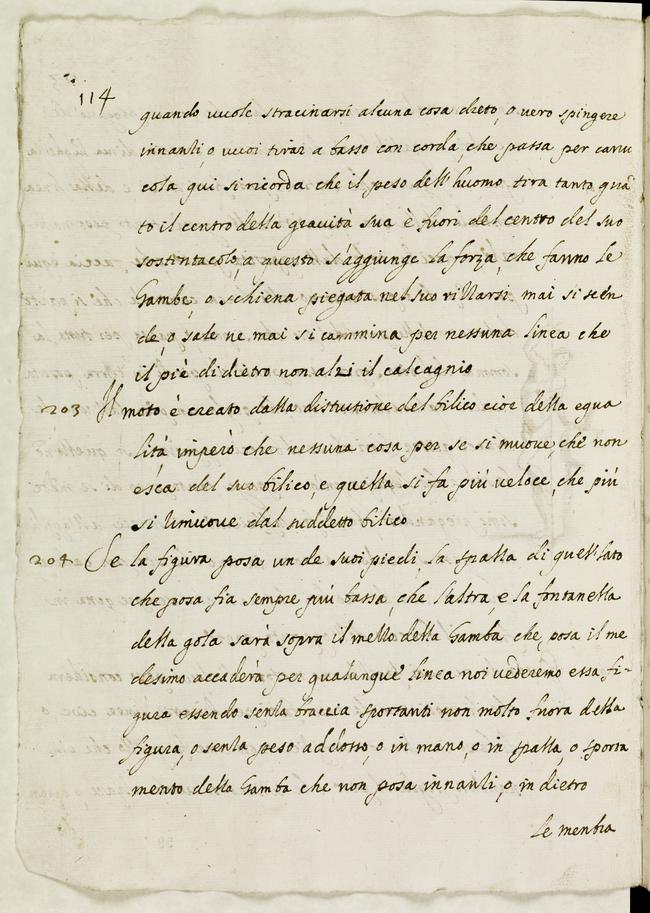 114
quando vuole stracinarsi alcuna cosa dreto, o vero spingere
innanti, o vuoi tirar a basso con corda, che passa per carru
cola qui si ricorda che il peso dell'huomo tira tanto quã
to il centro della gravità sua è fuori del centro del suo
sostentacolo, a questo s'aggiunge la forza, che fanno le
Gambe, o schiena piegata nel suo rizzarsi mai si scen
de, o sale ne mai si cammina per nessuna linea che
il piè di dietro non alzi il calcagnio
203 Il moto è creato dalla distrutione del bilico cioe della egua
lità imperò che nessuna cosa per se si muove, che non
esca del suo bilico, e quella si fa più veloce, che più
si rimuove dal suddetto bilico
204 Se la figura posa un de suoi piedi, la spalla di quell lato
che posa fia sempre più bassa, che l'altra, e la fontanella
della gola sarà sopra il mezzo della Gamba che posa il me
desimo accaderà per qualunque linea noi vederemo essa fi-
gura essendo senza braccia sportanti non molto fuora della
figura, o senza peso addosso, o in mano, o in spalla, o sporta
mento della Gamba che non posa innanzi, o in dietro
le menbra